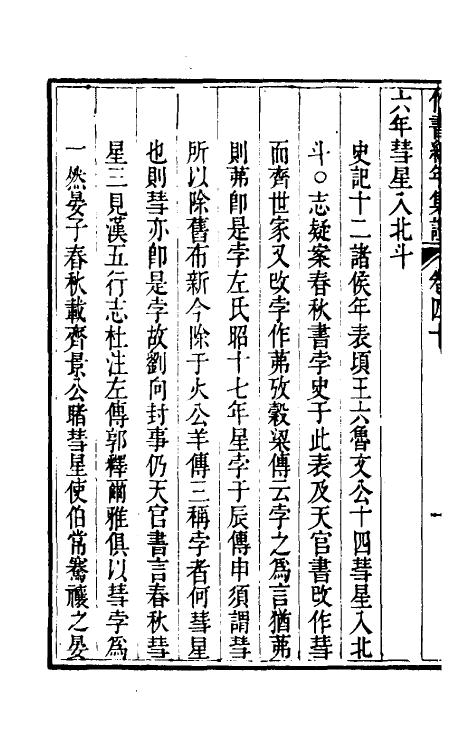 竹書紀年集證 卷四十 一
六年彗星入北斗
史記十二諸侯年表頃王六魯文公十四彗星入北
斗○志疑案春秋書孛史于此表及天官書改作彗
而齊世家又改孛作茀攷穀梁傳云孛之爲言猶茀
則茀卽是孛左氏昭十七年星孛于辰傳申須謂彗
所以除舊布新今除于火公羊傳三稱孛者何彗星
也則彗亦卽是孛故劉向封事仍天官書言春秋彗
星三見漢五行志杜注左傳郭釋爾雅俱以彗孛爲
一然晏子春秋載齊景公睹彗星使伯常騫禳之晏